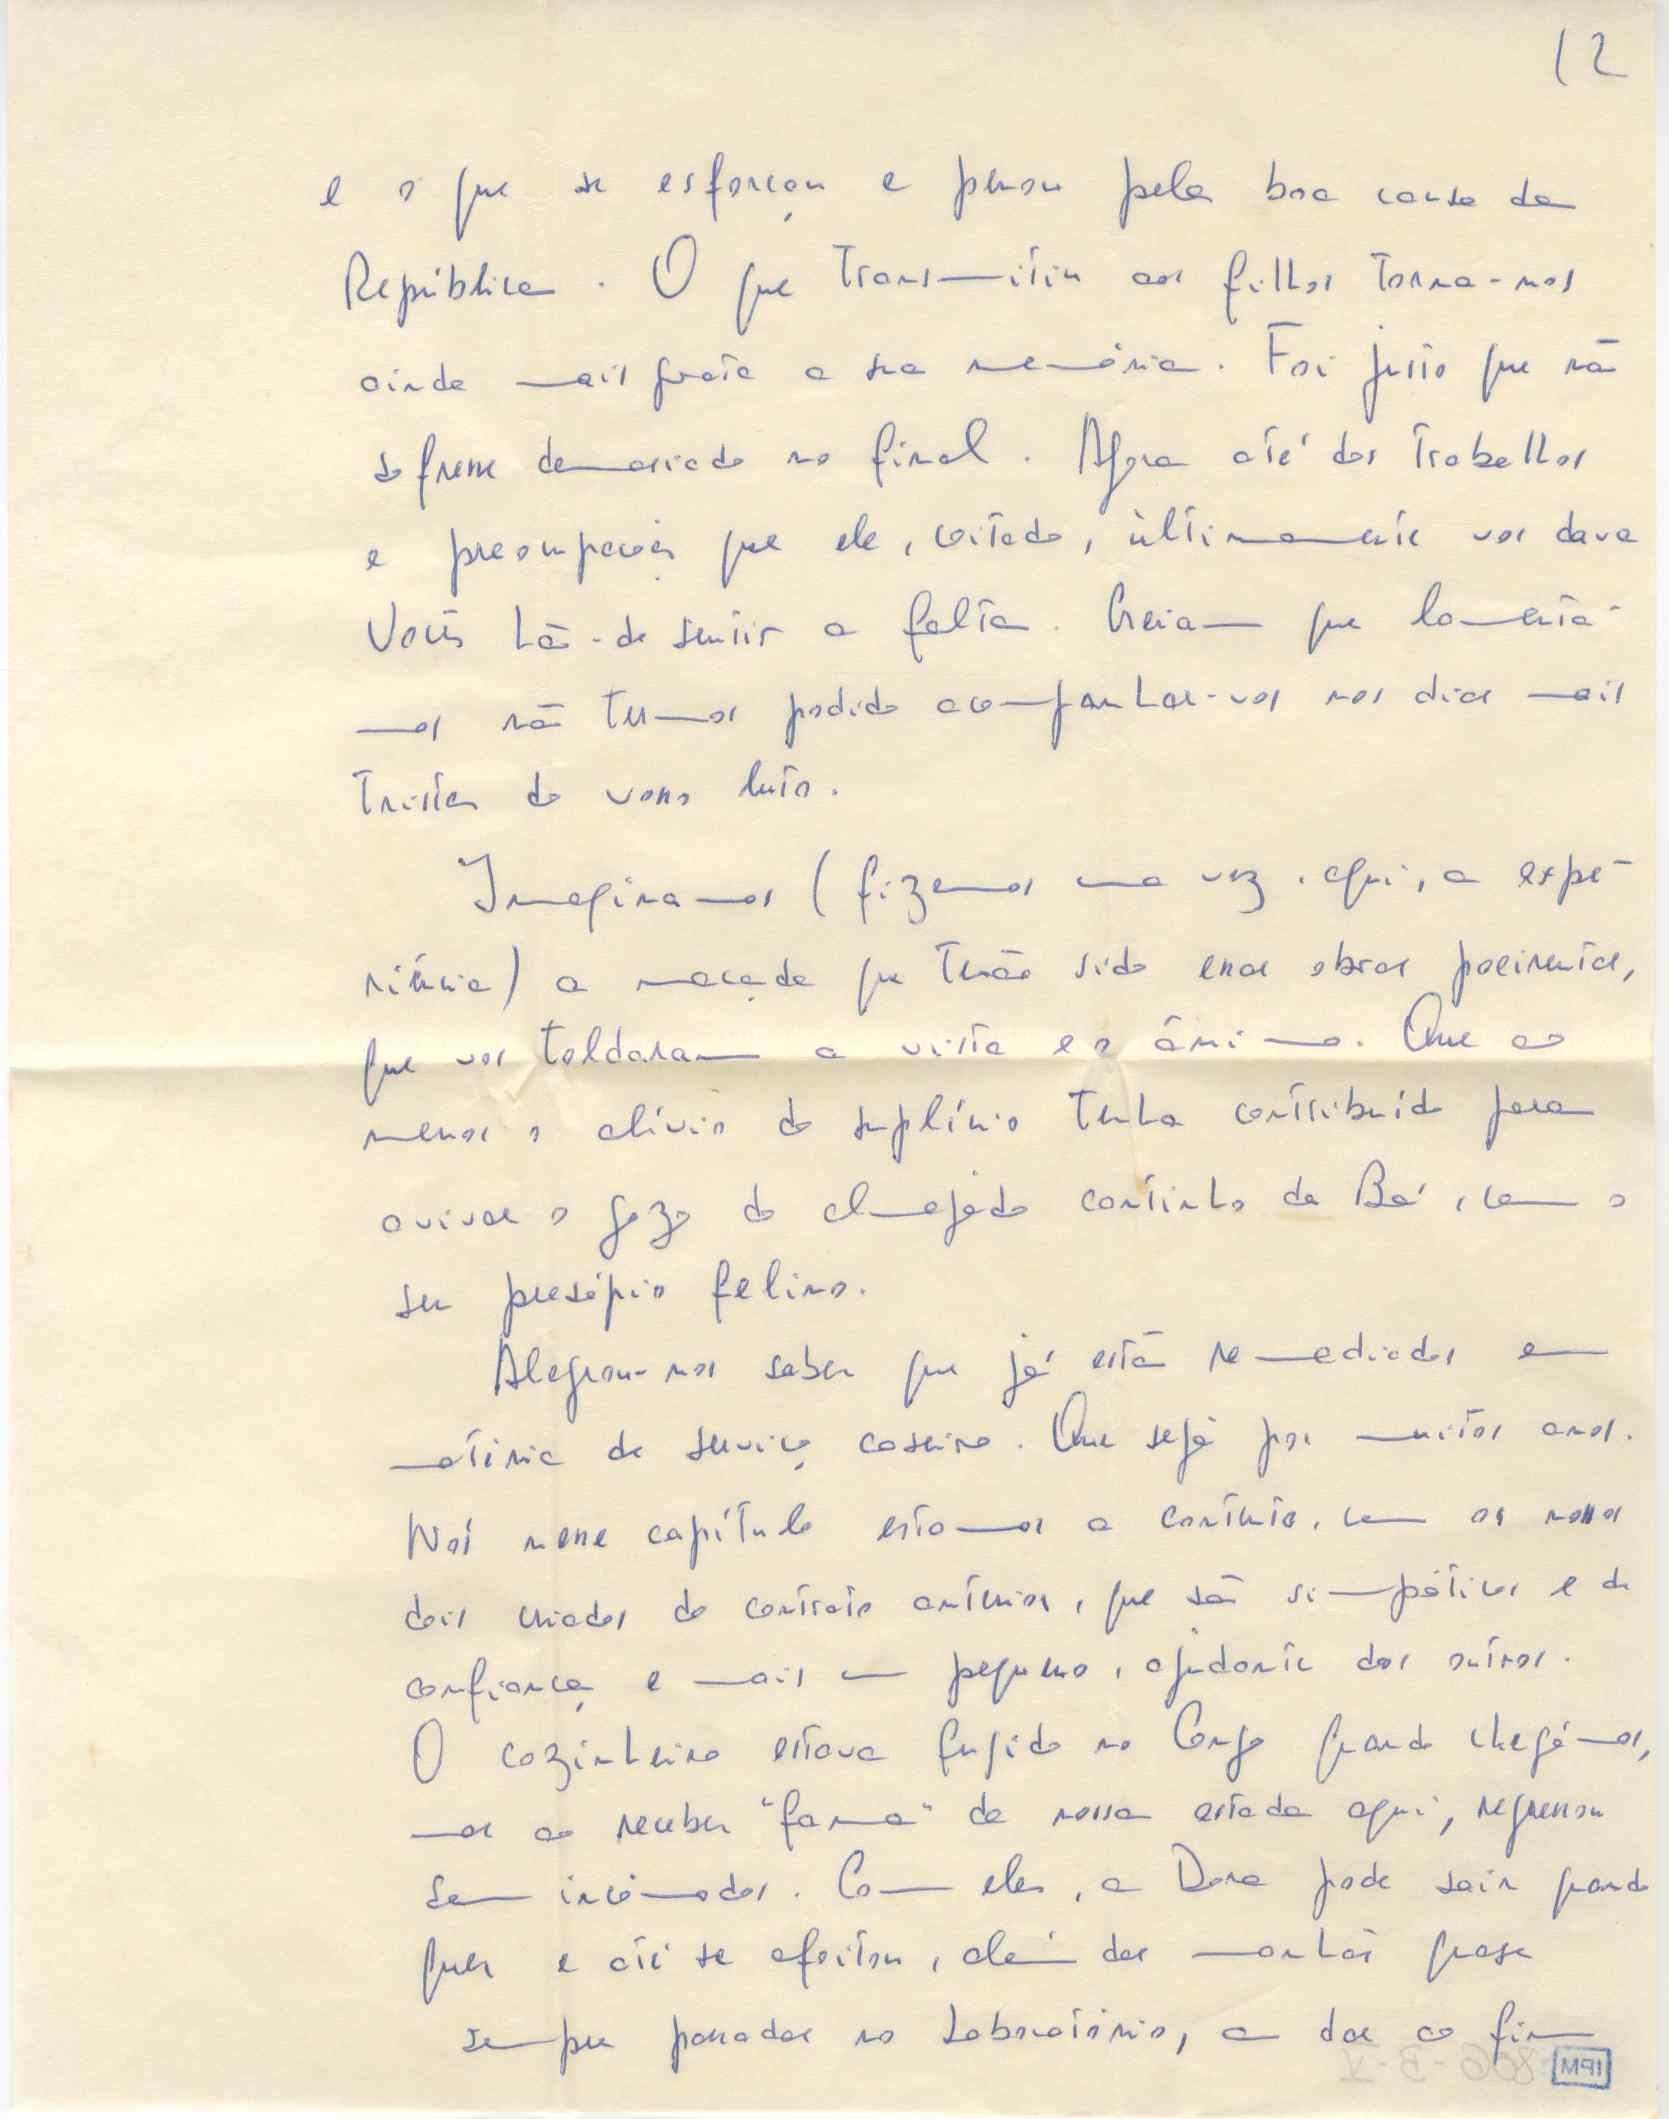 12
e o que se esforçou e penou pela boa causa da
República. O que transmitiu aos filhos torna-nos
ainda mais grata a sua memória. Foi justo que não
sofresse demasiado no final. Agora até dos trabalhos
e preocupações que ele, coitado, ùltimamente vos dava
Vocês hão-de sentir a falta. Creiam que lamenta-
mos não termos podido acompanhar-vos nos dias mais
tristes do vosso luto.
Imaginamos (fizemos uma vez, aqui, a expe-
riência) a maçada que terão sido essas obras poeirentas,
que vos toldaram a vista e o ânimo. Que ao
menos o alívio do suplício tenha contribuído para
avivar o gozo do almejado cantinho da Bá, com o
seu presépio felino.
Alegrou-nos saber que já estão remediados em
matéria de serviço caseiro. Que seja por muitos anos.
Nós nesse capítulo estamos a contento, com os nossos
dois criados do contrato anterior, que são simpáticos e de
confiança e mais um pequeno, ajudante dos outros.
O cozinheiro estava fugido no Congo quando chegámos,
mas ao receber "fama" da nossa estada aqui, regressou
sem incómodos. Com eles, a Dora pode sair quando
quer e até se afoitou, além das manhãs quase
sempre passadas no Laboratório, a dar ao fim
806-B-V
IPM